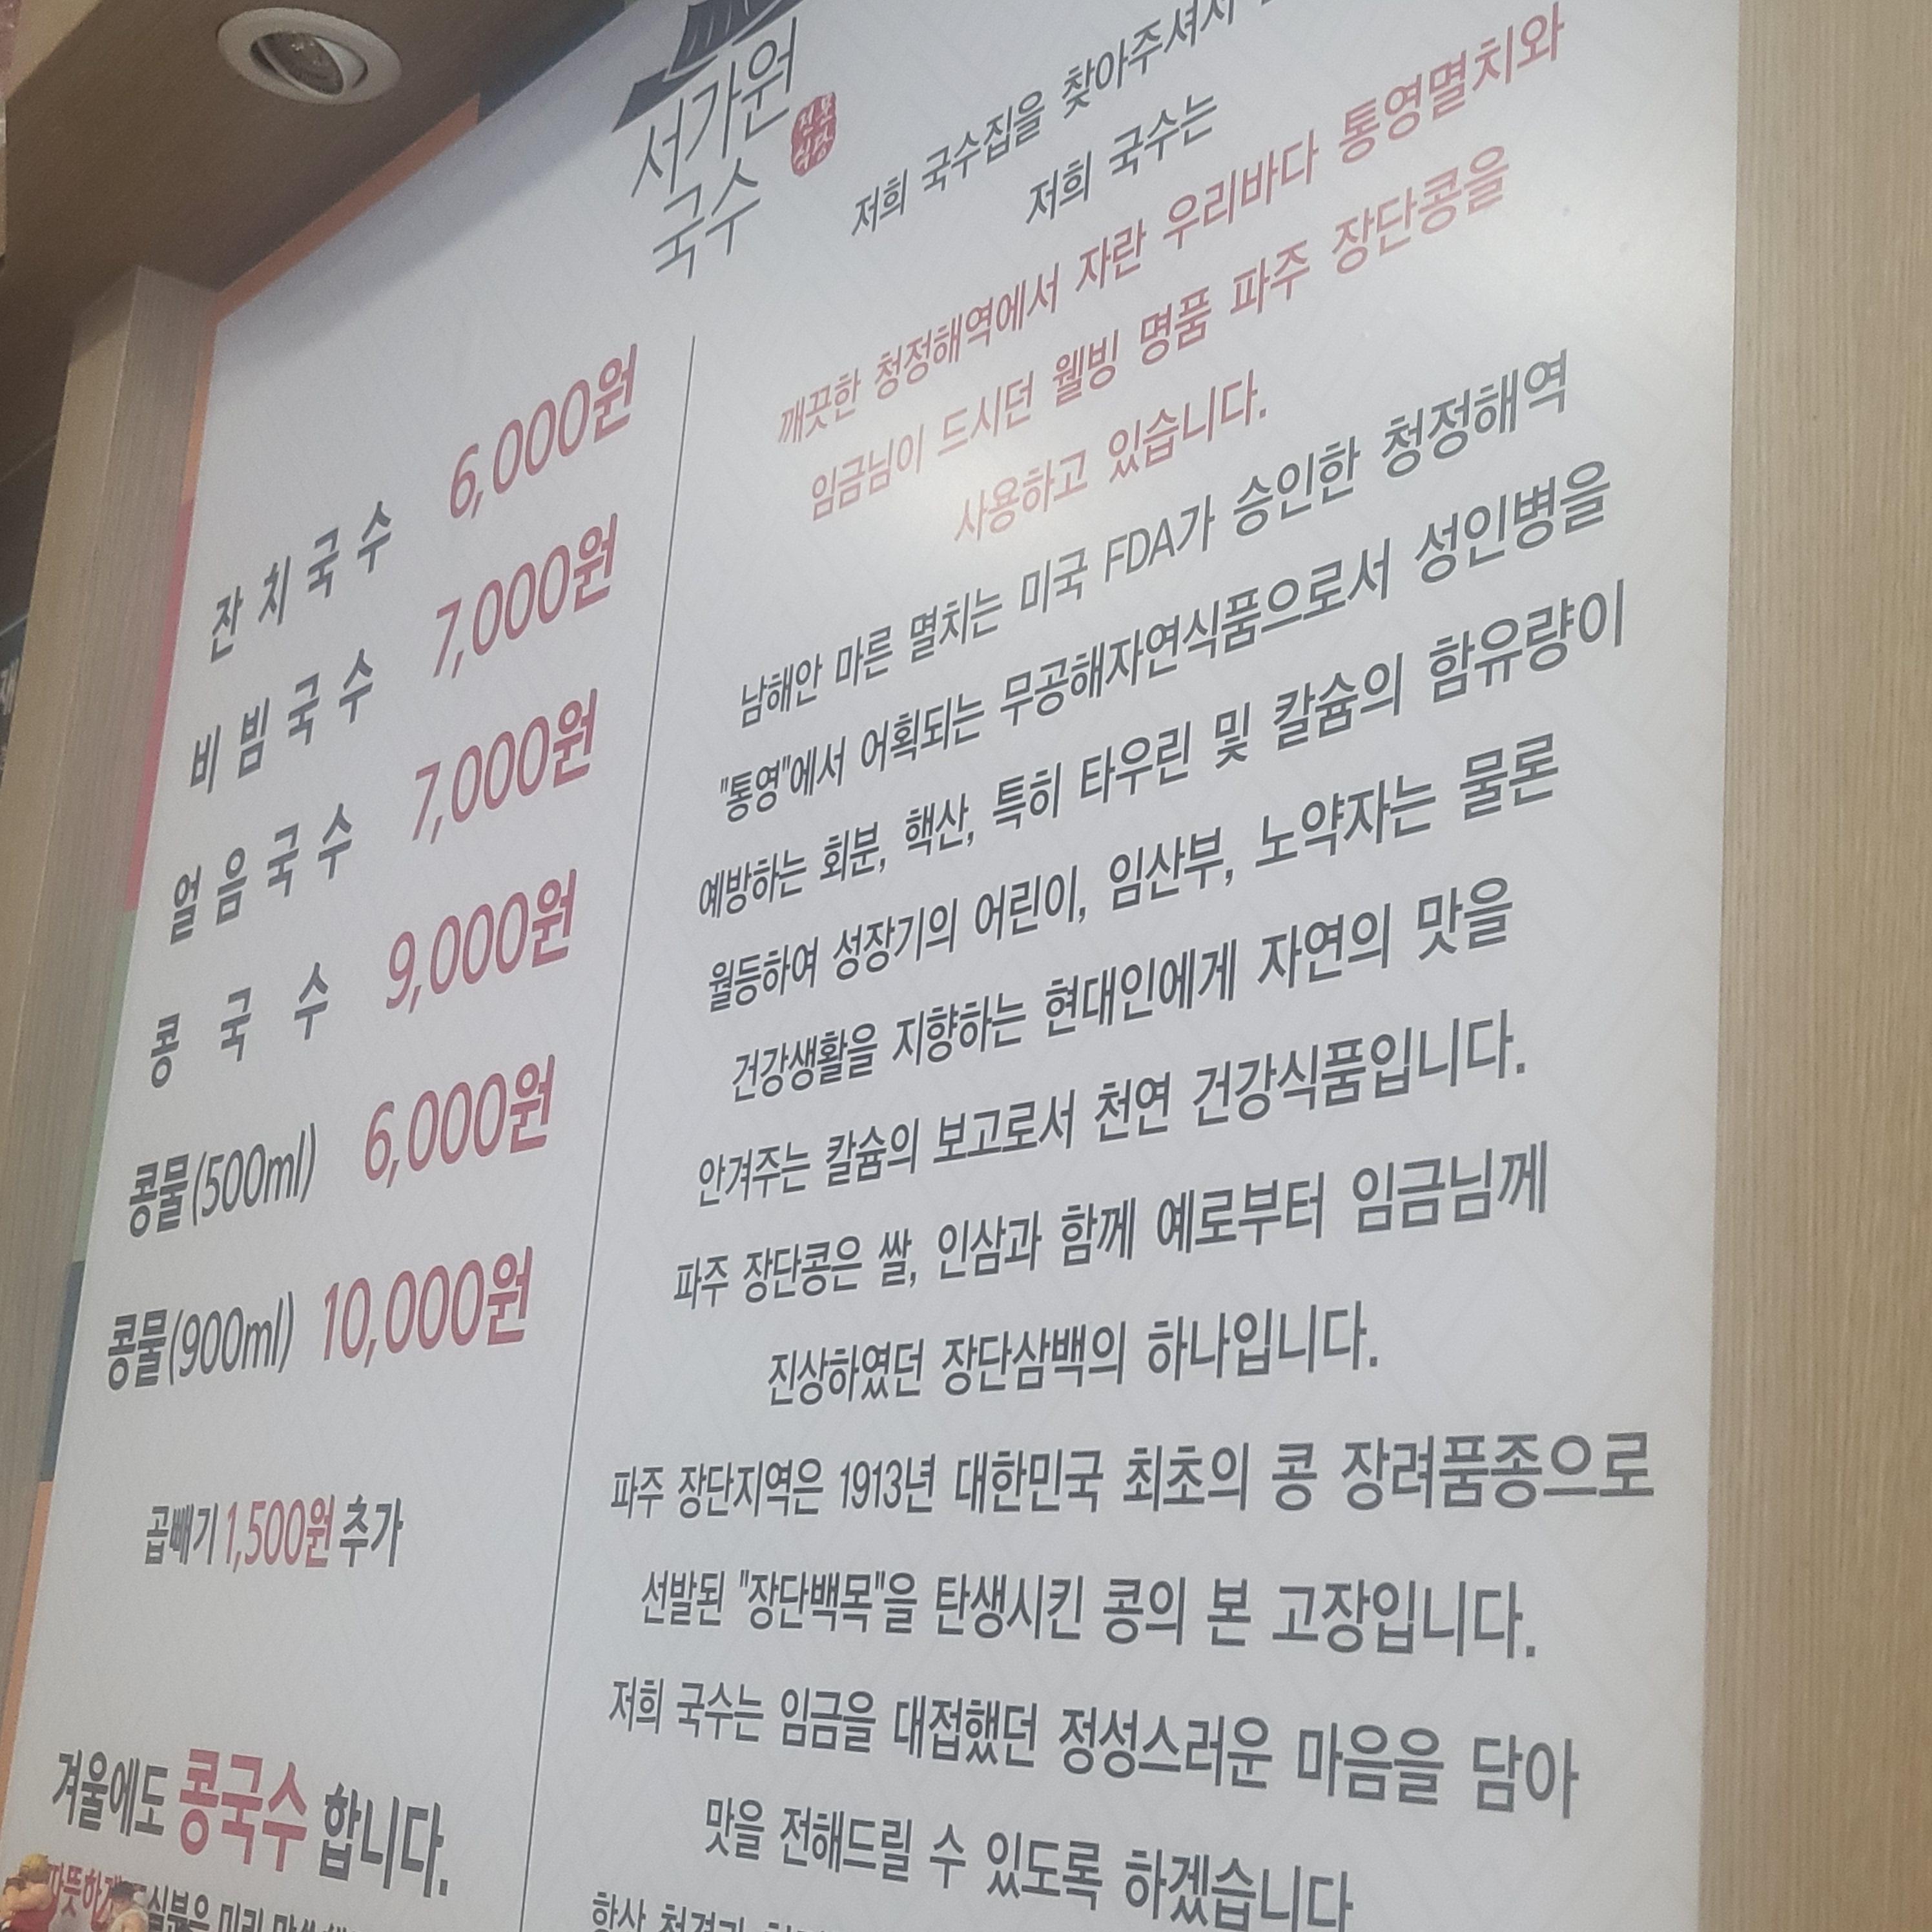 서가원
국수
전문
식당
잔치국수 6,000원
비빔국수 7,000원
얼음국수 7,000원
콩국수 9,000원
콩물(500ml) 6,000원
콩물(900ml) 10,000원
곱빼기 1,500원 추가
겨울에도 콩국수 합니다.
따뜻하게
저희 국수집을 찾아주셔서
저희 국수는
깨끗한 청정해역에서 자란 우리바다 통영멸치와
임금님이 드시던 웰빙 명품 파주 장단콩을
사용하고 있습니다.
남해안 마른 멸치는 미국 FDA가 승인한 청정해역
"통영"에서 어획되는 무공해자연식품으로서 성인병을
예방하는 회분, 핵산, 특히 타우린 및 칼슘의 함유량이
월등하여 성장기의 어린이, 임산부, 노약자는 물론
건강생활을 지향하는 현대인에게 자연의 맛을
안겨주는 칼슘의 보고로서 천연 건강식품입니다.
파주 장단콩은 쌀, 인삼과 함께 예로부터 임금님께
진상하였던 장단삼백의 하나입니다.
파주 장단지역은 1913년 대한민국 최초의 콩 장려품종으로
선발된 "장단백목"을 탄생시킨 콩의 본 고장입니다.
저희 국수는 임금을 대접했던 정성스러운 마음을 담아
맛을 전해드릴 수 있도록 하겠습니다
항상